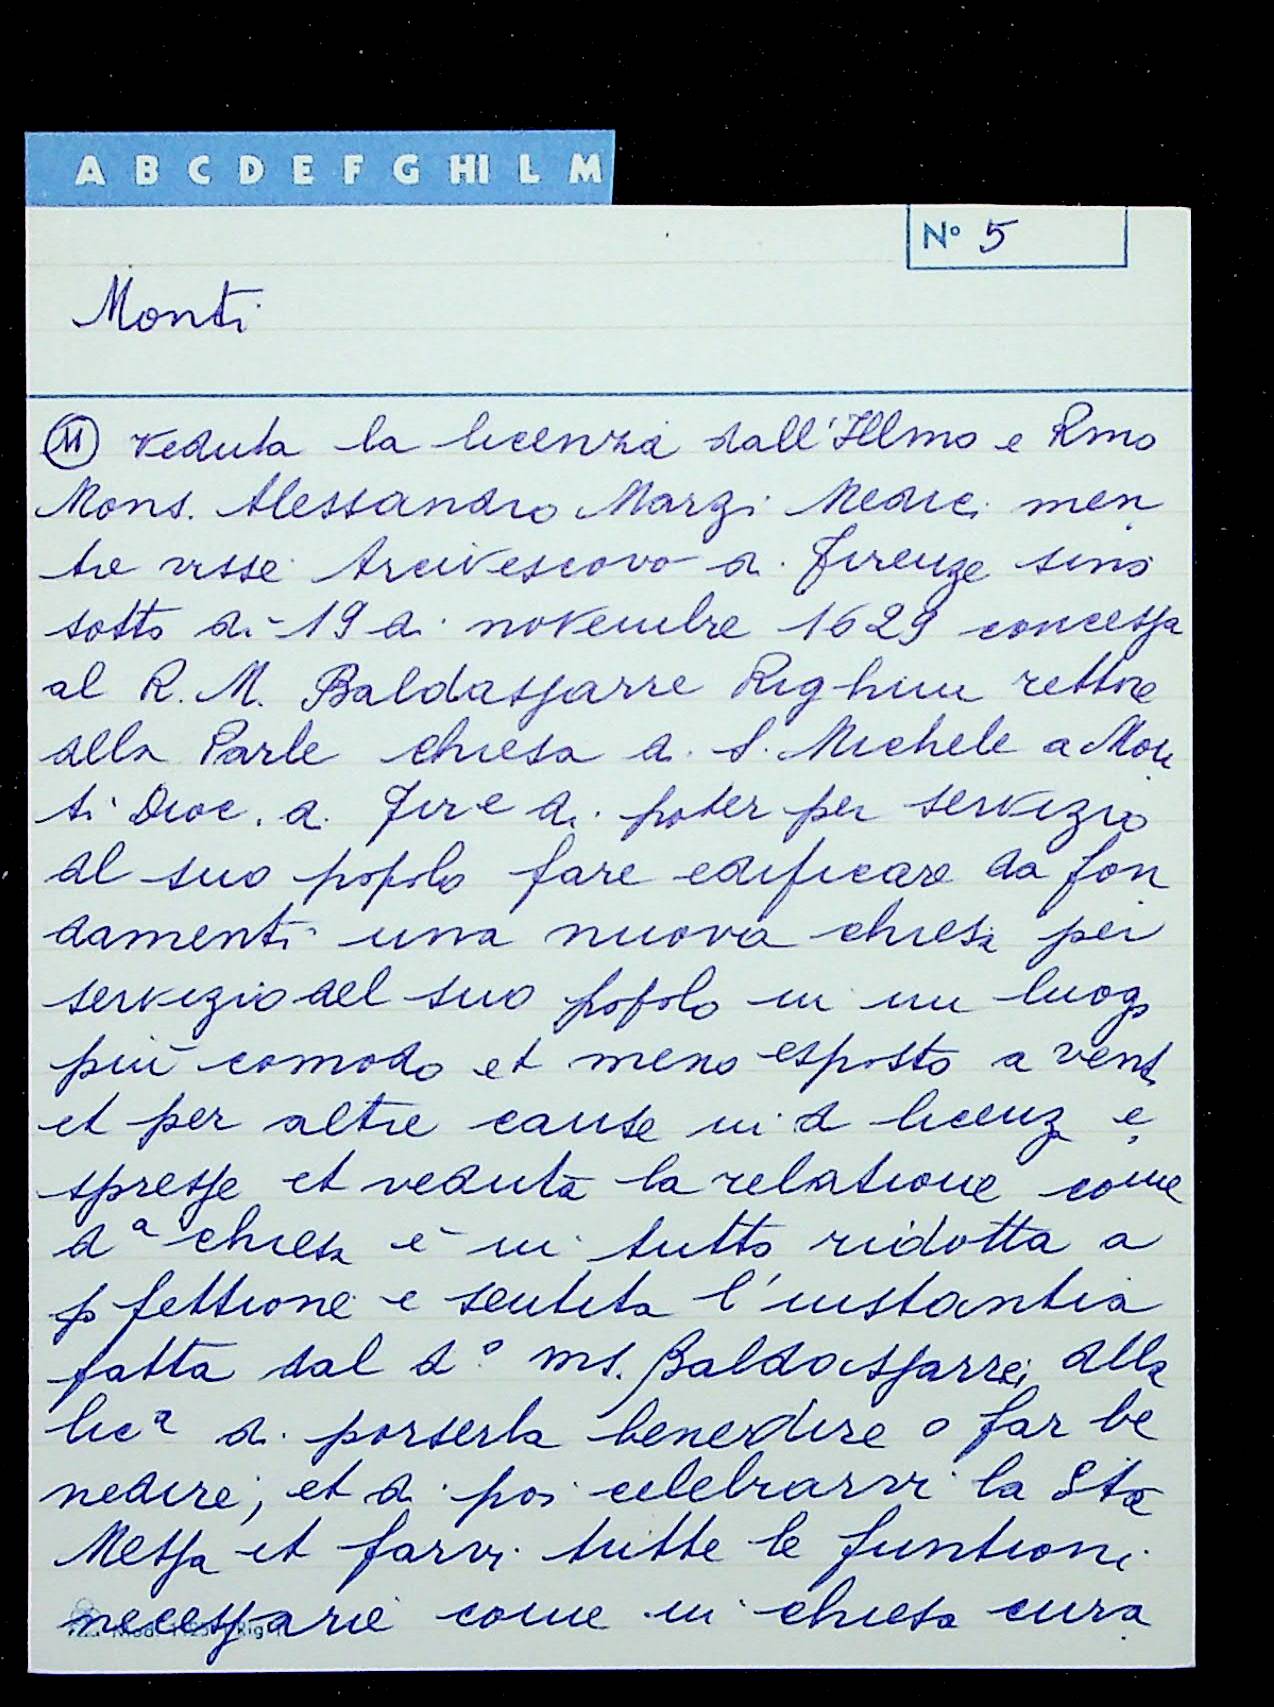 A B C D E F G HI L M
N° 5
Monti
11 Veduta la licenza dall'Illmo e Rmo
Mons. Alessandro Marzi Medici men
tre visse Arcivescovo di Firenze sino
sotto dì 19 di novembre 1629 concessa
al R. M. Baldassarre Righini rettore
della Parle chiesa di S. Michele a Mon
ti Dioc. di Fire di poter per servizio
del suo popolo fare edificare da fon
damenti una nuova chiesa per
servizio del suo popolo in un luogo
più comodo et meno esposto a venti
et per altre cause in d licenz e
spresse et veduta la relatione come
dª chiesa è in tutto ridotta a
pfettione e sentita l'instantia
fatta dal d° ms. Baldassarre, della
licª di porserla benerdire o far be
nedire, et di poi celebrarvi la Sta
Messa et farvi tutte le funtioni
necessarie come in chiesa cura